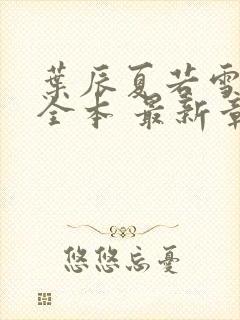 葉辰夏若雪
全本 最新章
悠悠忘憂